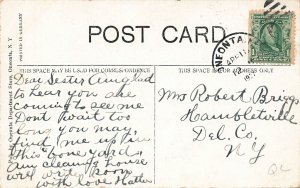 POST CARD
PRINTED IN GERMANY
Department Store, Oneonta, N.Y.
ONEONTA, N.Y.
THIS SPACE MAY BE USED FOR CORRESPONDENCE
THIS SPACE FOR ADDRESS ONLY
Dear Sister Am glad
to hear you are
coming to see me
Dont wait too
long you may
find me up in
this bone yard
am cleaning house
will write soon
with love Hattie
Mrs Robert Briggs
Hambletville
Del. Co.
N Y